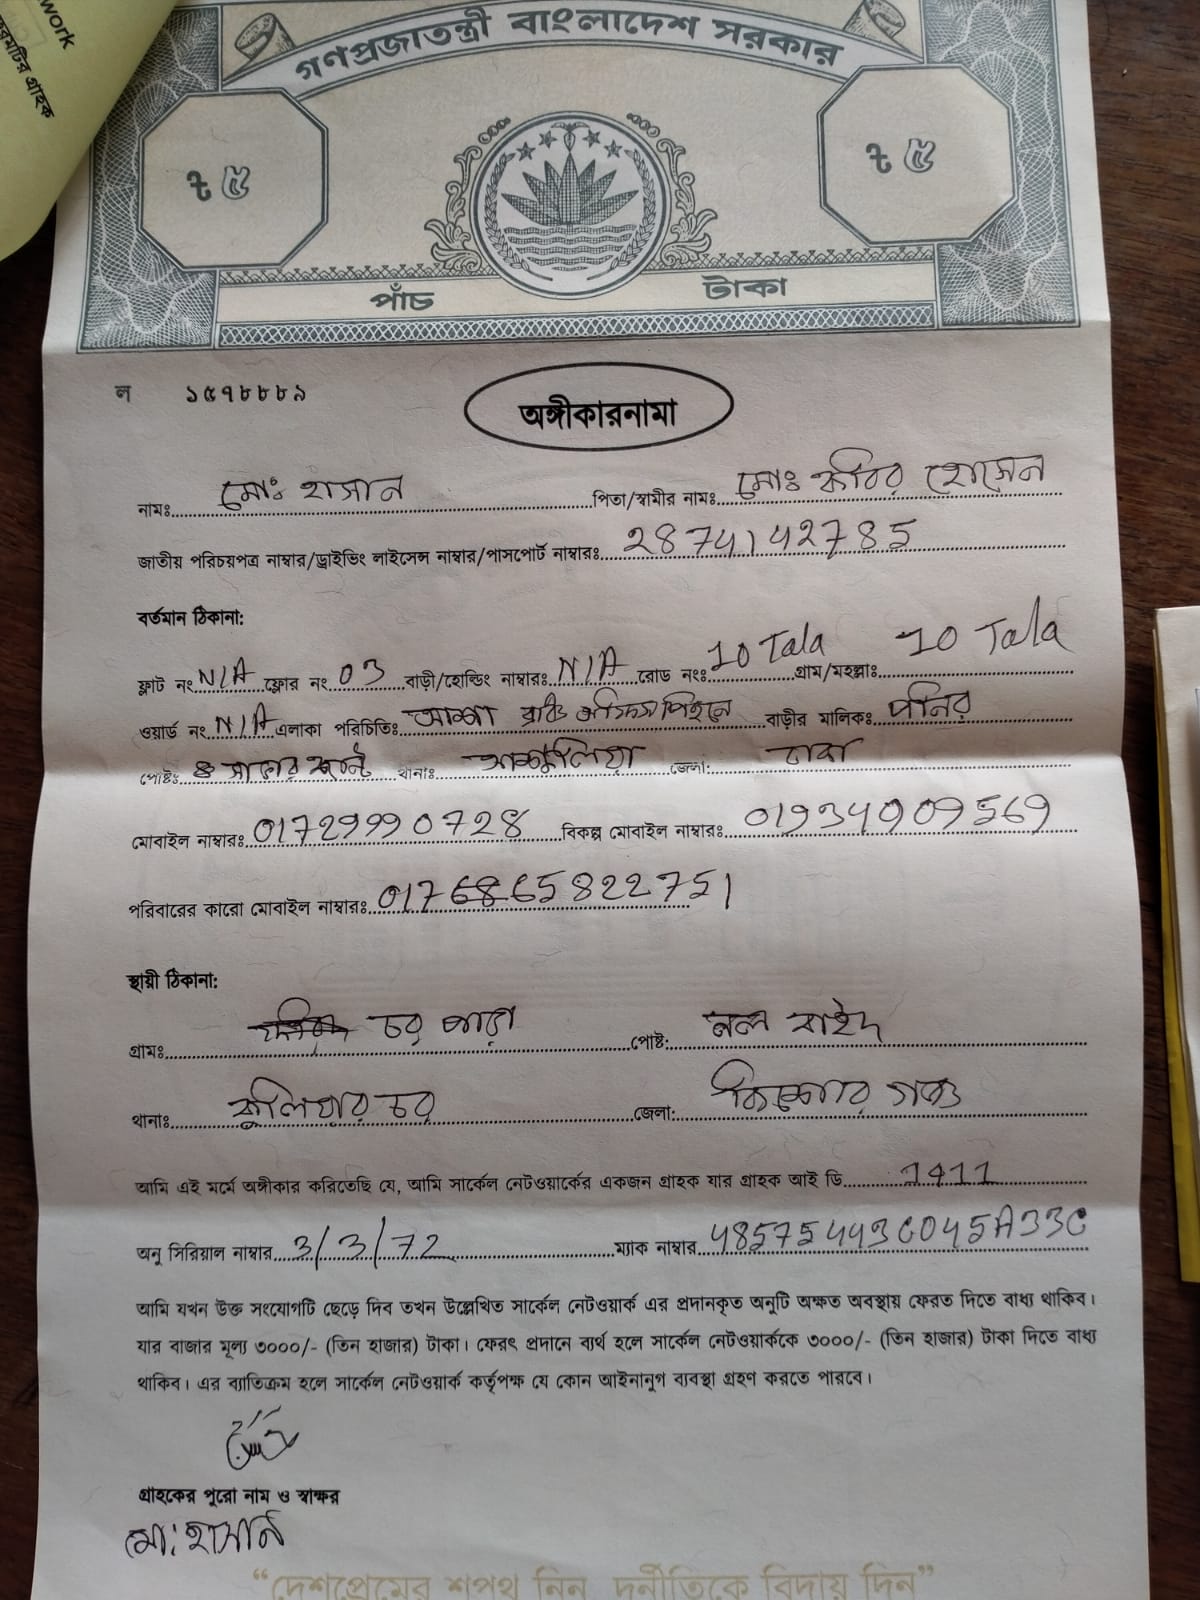 work
করমটির গ্রাহক
গণপ্রজাতন্ত্রী বাংলাদেশ সরকার
৳ ৫ ৳ ৫
পাঁচ টাকা
ল ১৫৭৮৮৮৯
অঙ্গীকারনামা
নামঃ মোঃ হাসান পিতা/স্বামীর নামঃ মোঃ কবির হোসেন
জাতীয় পরিচয়পত্র নাম্বার/ড্রাইভিং লাইসেন্স নাম্বার/পাসপোর্ট নাম্বারঃ 2874142785
বর্তমান ঠিকানা:
ফ্লাট নং N/A ফ্লোর নং 03 বাড়ী/হোল্ডিং নাম্বারঃ N/A রোড নংঃ 10 Tala গ্রাম/মহল্লাঃ 10 Tala
ওয়ার্ড নং N/A এলাকা পরিচিতিঃ আশা বাড়ীর মালিকঃ পনির
পোষ্টঃ থানাঃ আশুলিয়া জেলা: ঢাকা
মোবাইল নাম্বারঃ 01729990728 বিকল্প মোবাইল নাম্বারঃ 01934909569
পরিবারের কারো মোবাইল নাম্বারঃ
স্থায়ী ঠিকানা:
গ্রামঃ চর পোষ্ট:
থানাঃ কুলিয়ার চর জেলা: কিশোর গঞ্জ
আমি এই মর্মে অঙ্গীকার করিতেছি যে, আমি সার্কেল নেটওয়ার্কের একজন গ্রাহক যার গ্রাহক আই ডি 1411
অনু সিরিয়াল নাম্বার 3/3/72 ম্যাক নাম্বার 48575443C045A33C
আমি যখন উক্ত সংযোগটি ছেড়ে দিব তখন উল্লেখিত সার্কেল নেটওয়ার্ক এর প্রদানকৃত অনুটি অক্ষত অবস্থায় ফেরত দিতে বাধ্য থাকিব।
যার বাজার মূল্য ৩০০০/- (তিন হাজার) টাকা। ফেরৎ প্রদানে ব্যর্থ হলে সার্কেল নেটওয়ার্ককে ৩০০০/- (তিন হাজার) টাকা দিতে বাধ্য
থাকিব। এর ব্যতিক্রম হলে সার্কেল নেটওয়ার্ক কর্তৃপক্ষ যে কোন আইনানুগ ব্যবস্থা গ্রহণ করতে পারবে।
গ্রাহকের পুরো নাম ও স্বাক্ষর
মো: হাসান
“দেশপ্রেমের শপথ নিন দুর্নীতিকে বিদায় দিন”